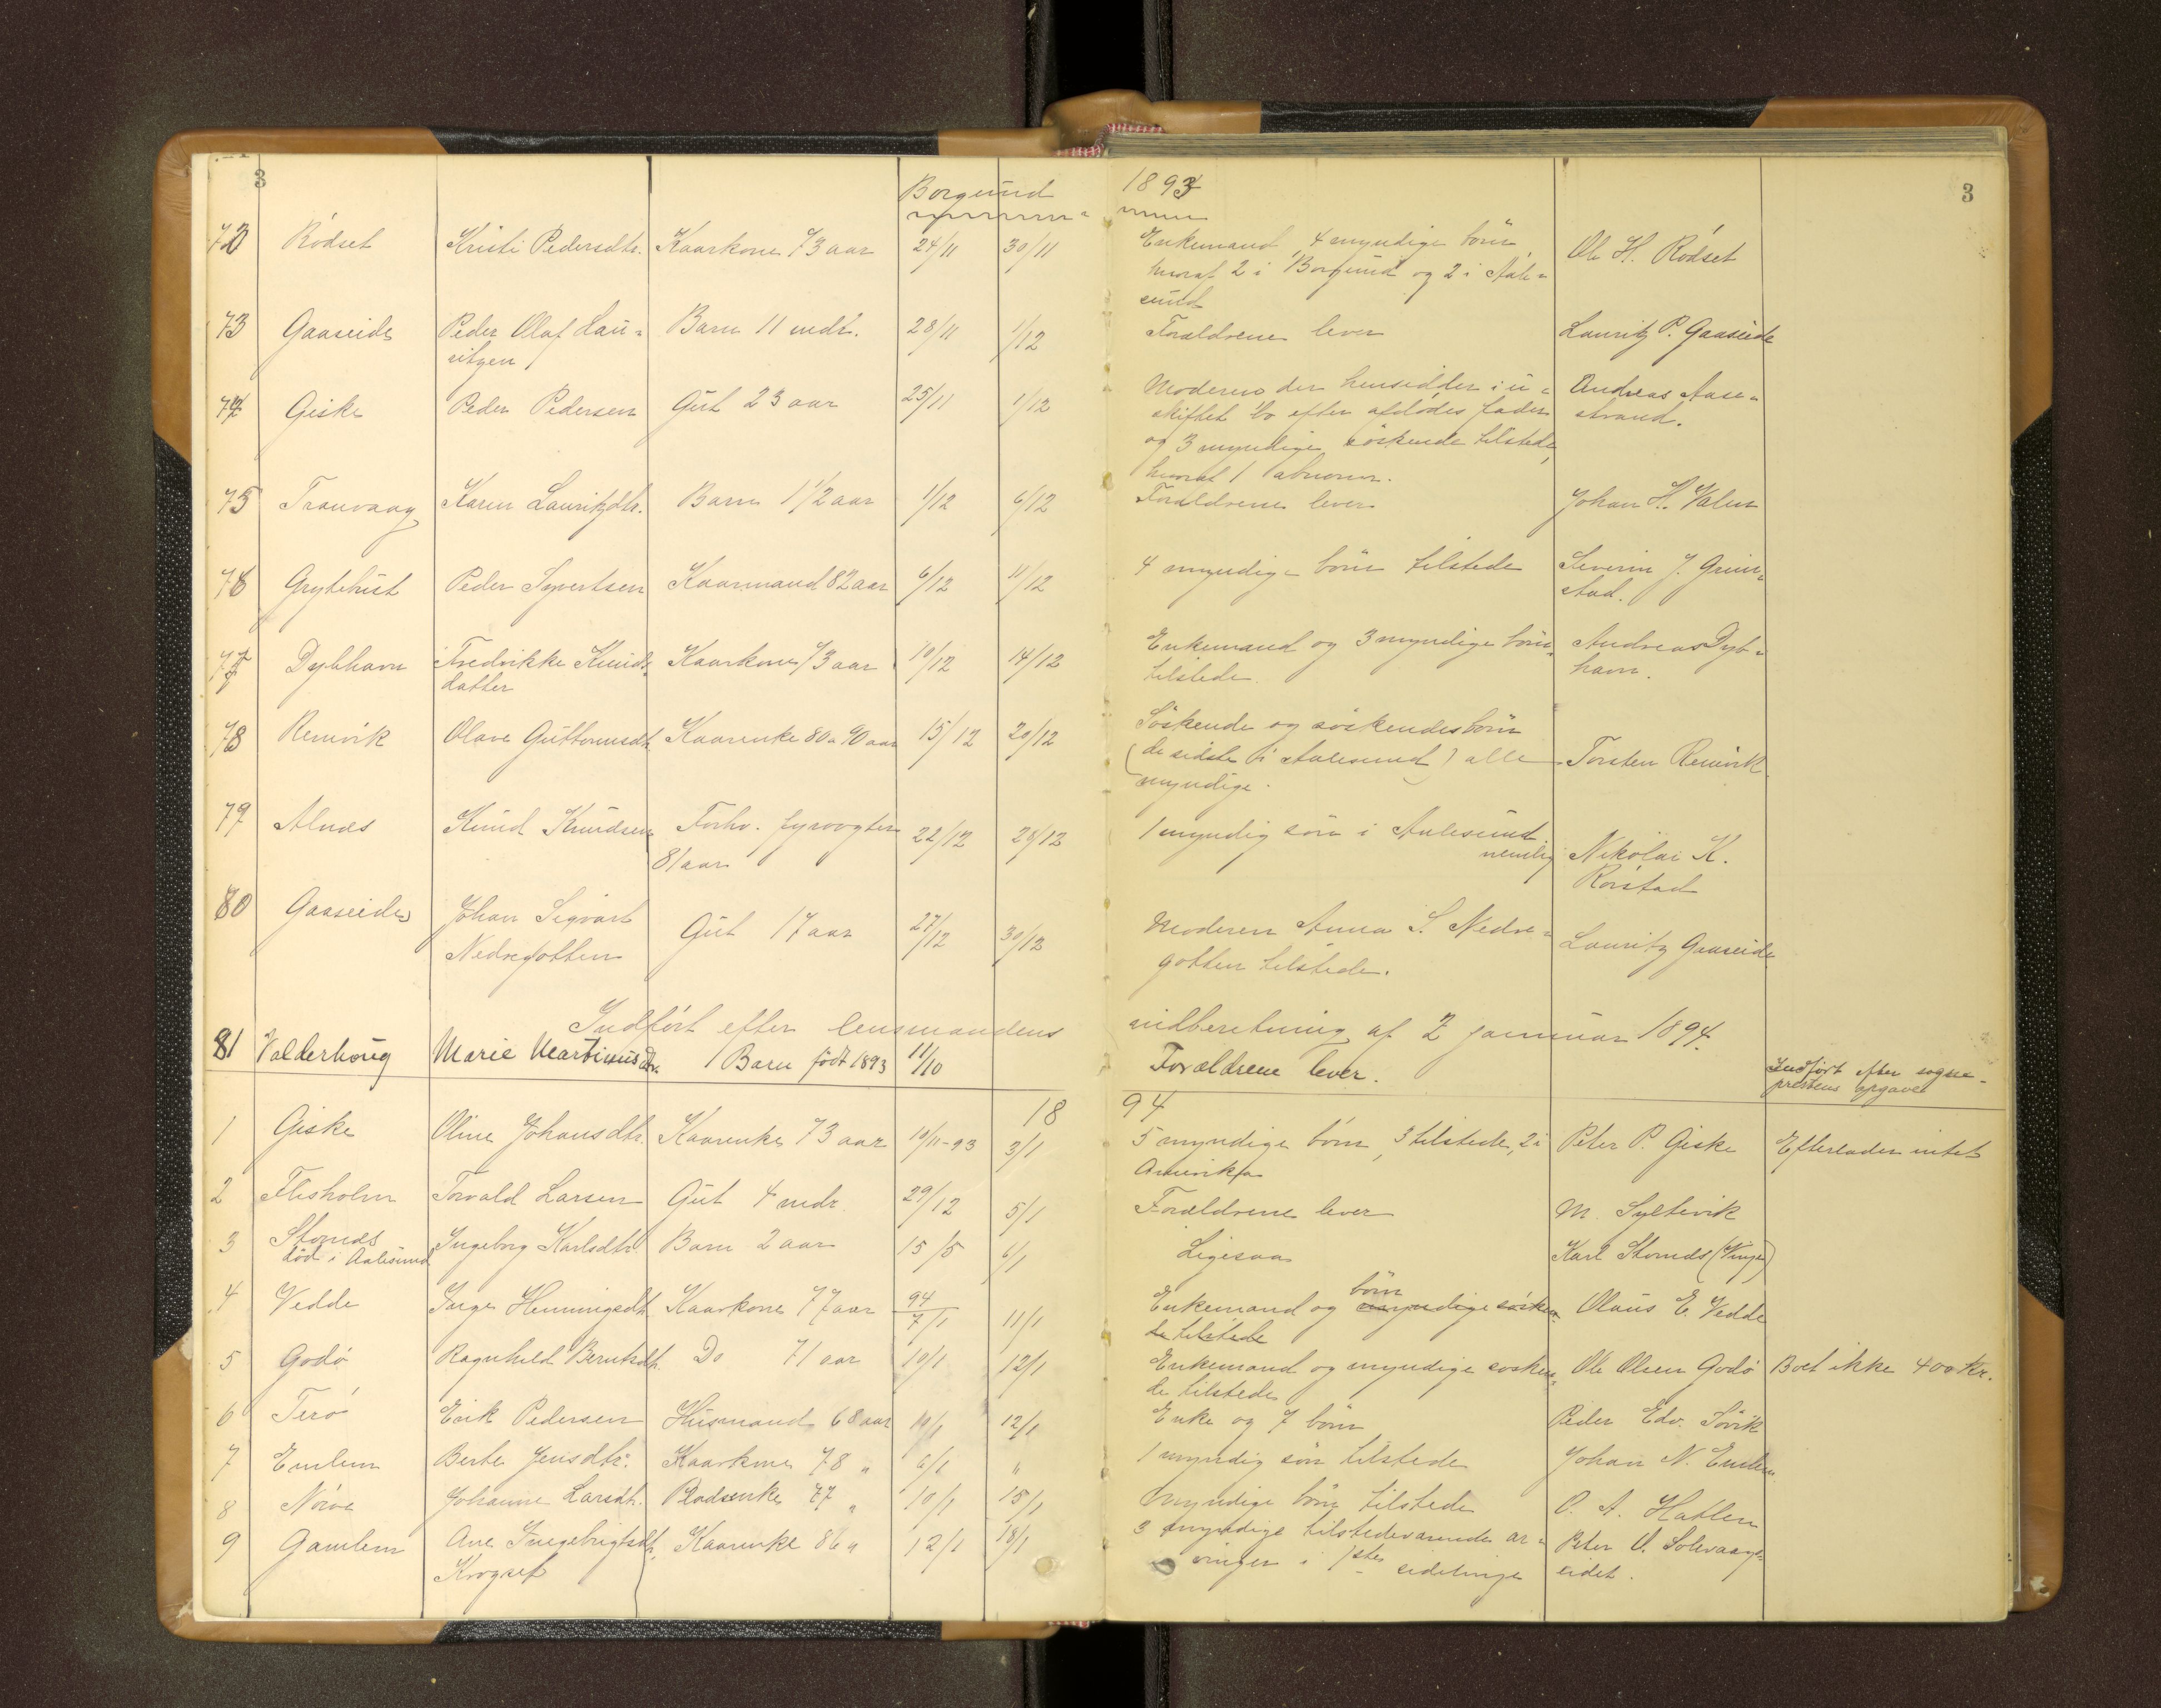 3 Borgund 1893 3
72 Rödset Kristi Pedersdtr. Kaarkone 73 aar 24/11 30/11 Enkemand, 4 myndige börn Ole H. Rödset
hvoraf 2 i Borgund og 2 i Aale-
sund
73 Gaaseide Peder Olaf Lau- Barn 11 mdr. 28/11 1/12 Forældrene lever Lauritz P. Gaaseide
ritzen
74 Giske Peder Pedersen Gut 23 aar 25/11 1/12 Moderen der hensidder i u- Andreas Aase-
skiftet bo efter afdödes fader strand.
og 3 myndige söskende tilstede,
hvoraf 1 abnorm.
75 Tranvaag Karen Lauritzdtr. Barn 1 1/2 aar 1/12 6/12 Forældrene lever Johan H. Valen
76 Grytehust Peder Syvertsen Kaarmand 82 aar 6/12 11/12 4 myndige börn tilstede Severin J. Grim-
stad.
77 Dybhavn Fredrikke Knuds- Kaarkone 73 aar 10/12 14/12 Enkemand og 3 myndige börn Andreas Dyb-
datter tilstede. havn.
78 Remvik Olave Guttormsdtr. Kaarenke 80 a 90 aar 15/12 20/12 Söskende og söskendesbörn
(de sidste i Aalesund) alle Torsten Remvik
myndige.
79 Alnæs Knud Knudsen Forhv. fyrvogter 22/12 28/12 1 myndig sön i Aalesund
81 aar nemlig Nikolai K.
Rörstad
80 Gaaseide Johan Sigvart Gut 17 aar 27/12 30/12 Moderen Anna S. Nedre- Lauritz Gaaseide
Nedregotten gotten tilstede.
Indfört efter lensmandens indberetning af 2 januar 1894.
81 Valderhoug Marie Martinusdtr. Barn født 1893 11/10 Forældrene lever. Indført efter sogne-
prestens opgave
18 94
1 Giske Oline Johansdtr. Kaarenke 73 aar 19/11-93 3/1 5 myndige börn, 3 tilstede, 2 i Peter P. Giske Efterlader intet
Amerika
2 Flisholm Torvald Larsen Gut 4 mdr. 29/12 5/1 Forældrene lever M. Syltevik
3 Stornæs Ingeborg Karlsdtr. Barn 2 aar 15/5 6/1 Ligesaa Karl Stornæs (Vinje)
död i Aalesund
börn
4 Vedde Inger Henningsdtr. Kaarkone 77 aar 94 7/1 11/1 Enkemand og myndige sösken- Olaus E. Vedde
de tilstede
5 Godö Ragnhild Berntsdtr. Do 71 aar 10/1 12/1 Enkemand og myndige sösken- Ole Olsen Godö Boet ikke 400 Kr.
de tilstede
6 Terö Erik Pedersen Husmand 68 aar 10/1 12/1 Enke og 7 börn Peder Edv. Sövik
7 Emlem Berte Jensdtr. Kaarkone 78 " 6/1 " 1 myndig sön tilstede Johan N. Emlem
8 Nörve Johanne Larsdtr. Pladsenke 77 " 10/1 15/1 Myndige börn tilstede O. A. Hatlen
9 Gamlem Ane Ingebrigtsdtr. Kaarenke 86 " 12/1 18/1 3 myndige tilstedeværende ar- Peter O. Solevaags-
Krogset vinger i 1ste sidelinje eidet.